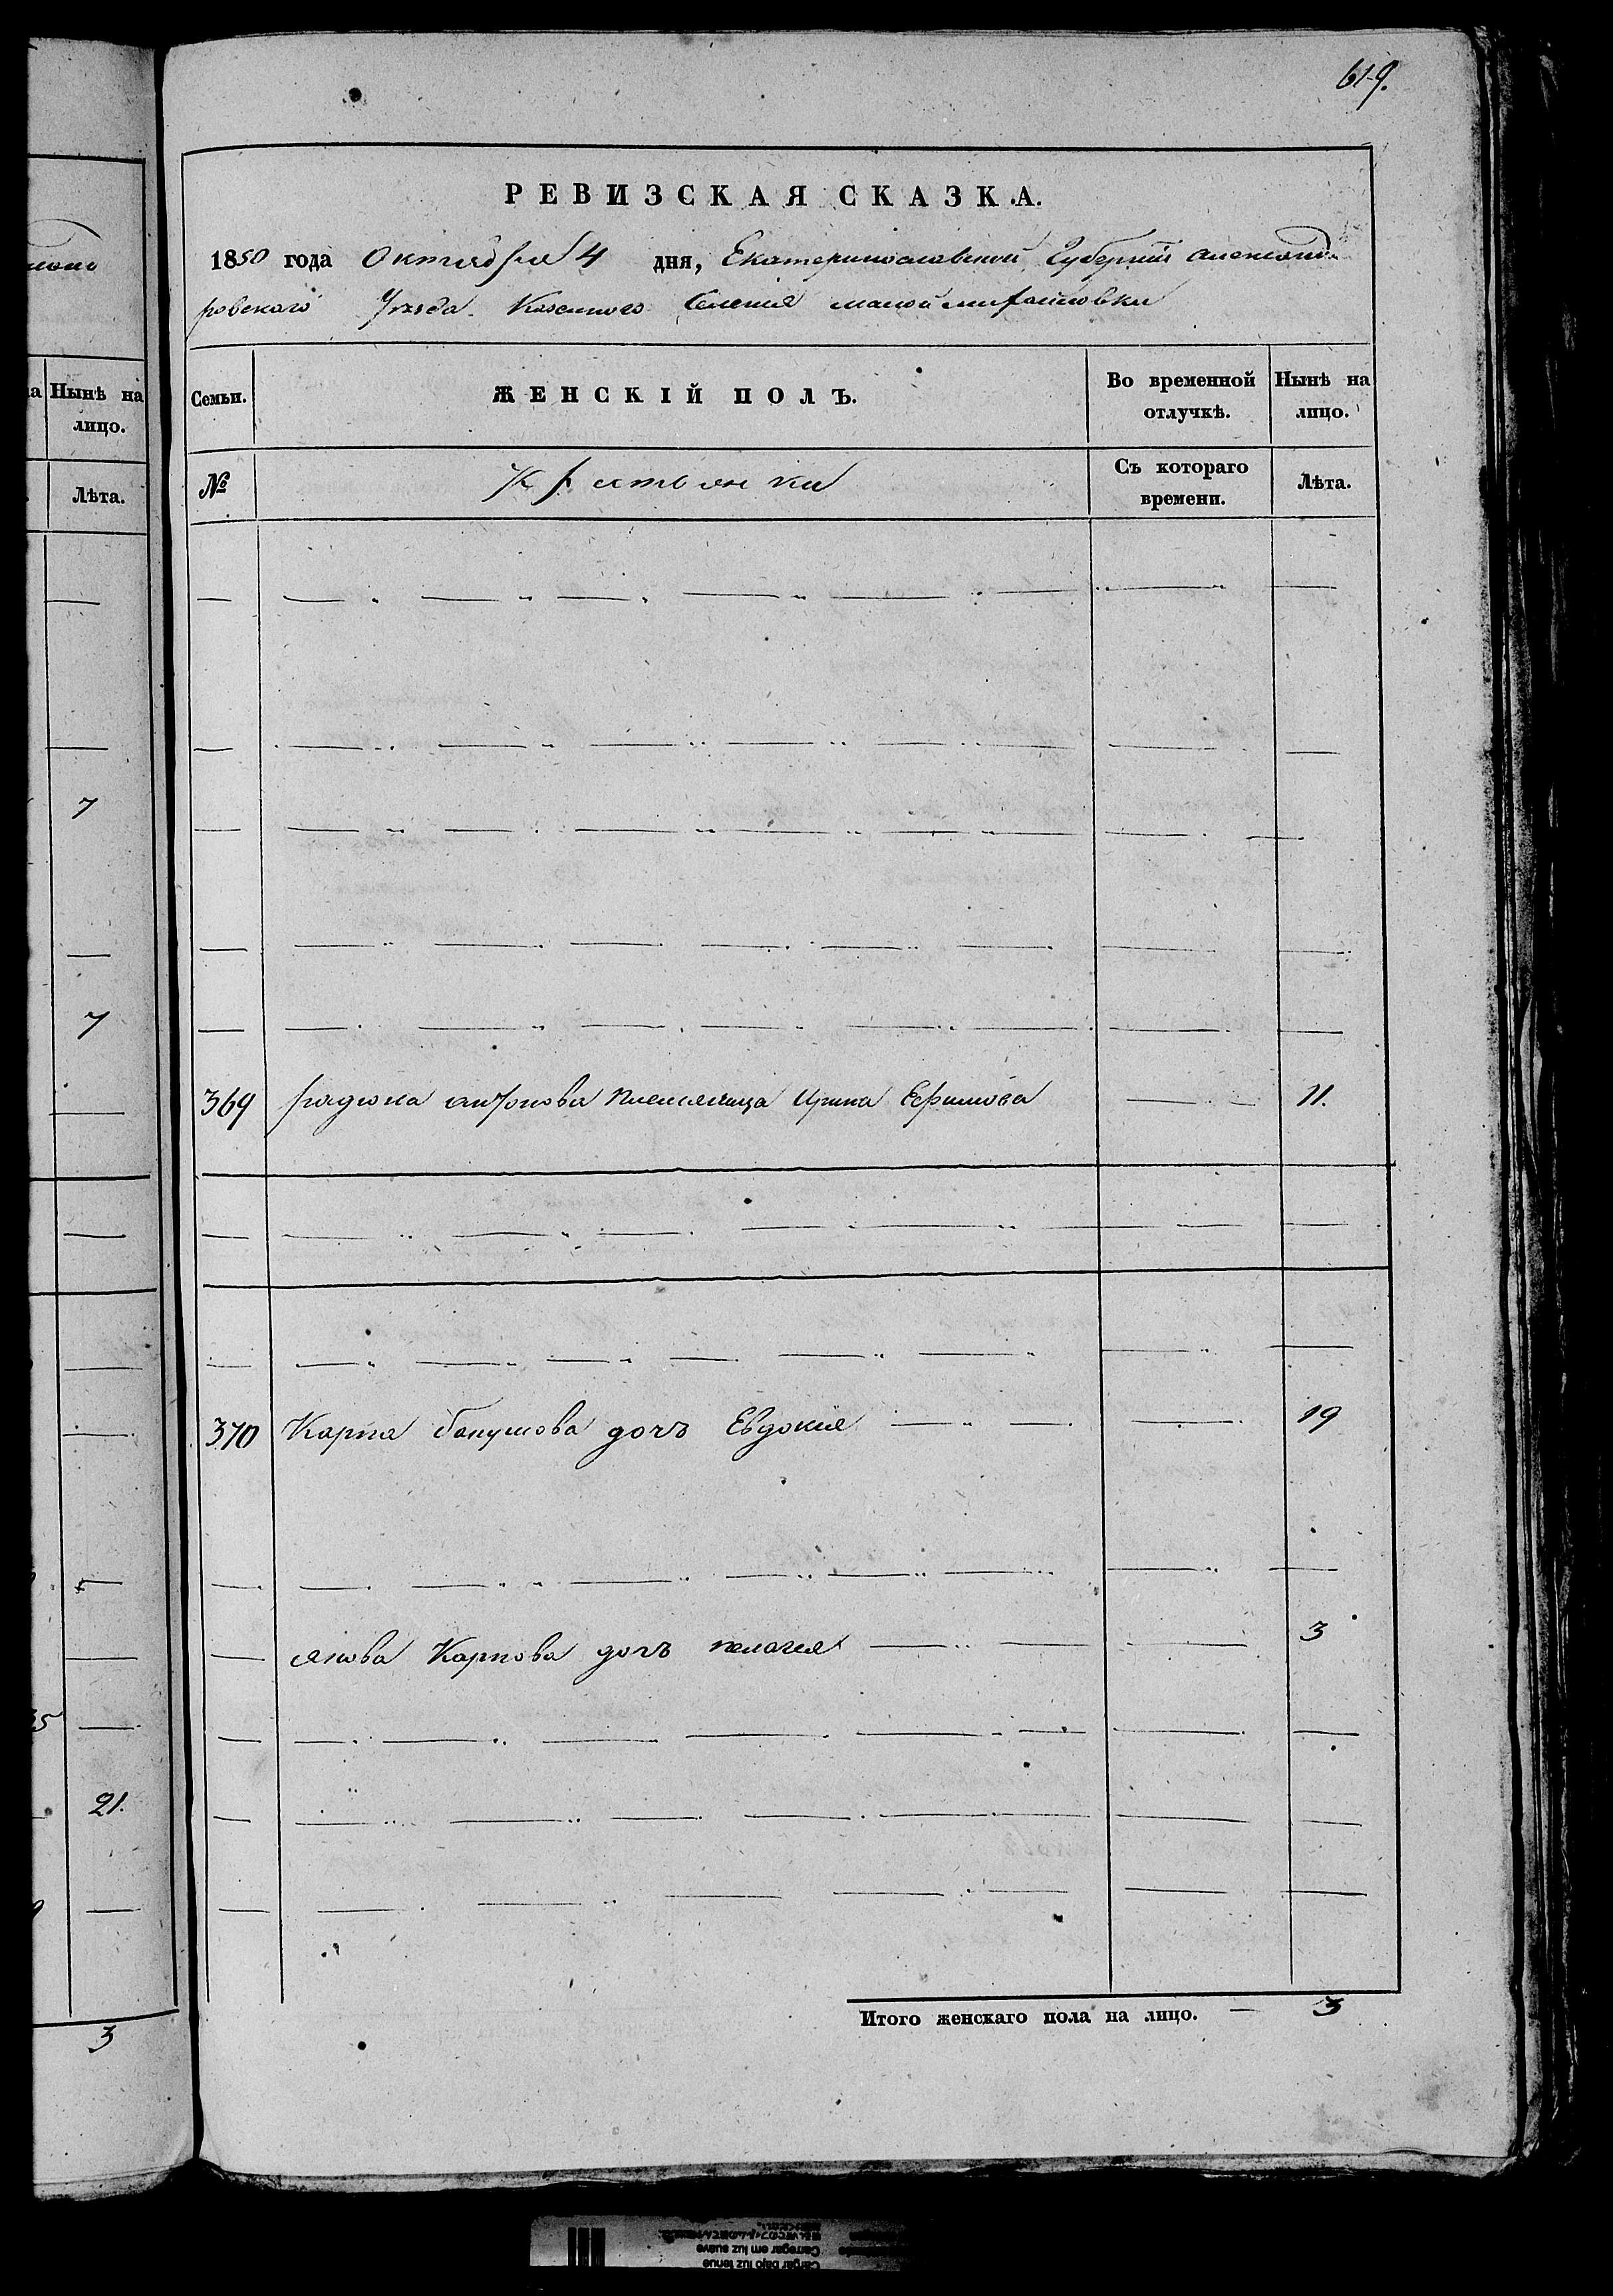 619.
РЕВИЗСКАЯ СКАЗКА.
1850 года Октября 4 дня, Екатеринославской Губернии Александ-
ровского Уезда. Казенного Селения малой михайловки
на Нынѣ на
лицо.
Лѣта.
Семьи. ЖЕНСКІЙ ПОЛЪ. Во временной отлучкѣ. Нынѣ на лицо.
№ Крестьянки Съ котораго времени. Лѣта.
7
7
369 радиона антонова племянница Ирина Ефимова 11.
370 Карпа дочъ Евдокия 19
якова Карпова дочъ пелагея 3
21.
Итого женскаго пола на лицо. — 3
3